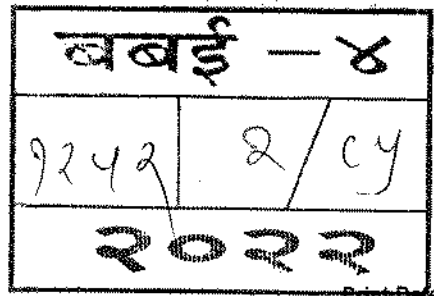 बबई – ४
१२५२ २/८५
२०२२